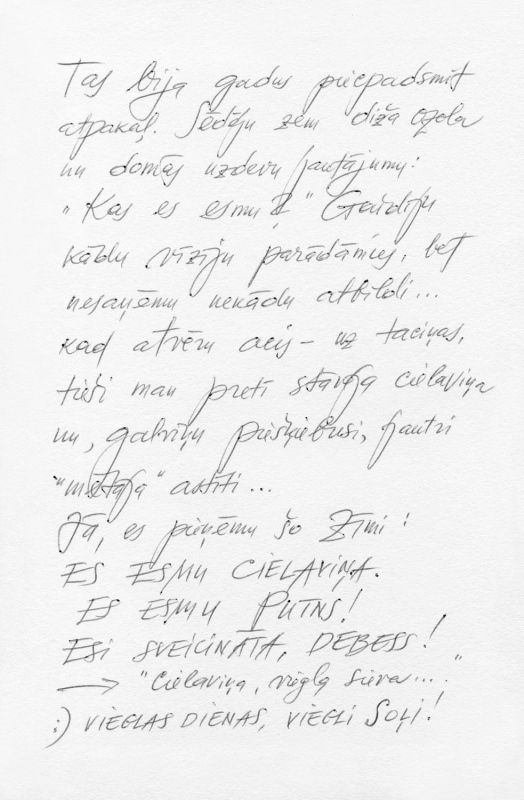 Tas bija gadus piecpadsmit
atpakaļ. Sēdēju zem diža ozola
un domās uzdevu jautājumu:
"Kas es esmu?" Gaidīju
kādu vīziju parādāmies, bet
nesaņēmu nekādu atbildi...
kad atvēru acis – uz taciņas,
tieši man pretī stāvēja cielaviņa
un, galviņu piešķiebusi, jautri
"mētāja" astīti...
Jā, es pieņēmu šo Zīmi:
ES ESMU CIELAVIŅA.
ES ESMU PUTNS!
ESI SVEICINĀTA, DEBESS!
→ "Cielaviņa, vieglā sieva...."
:) VIEGLAS DIENAS, VIEGLI SOĻI!